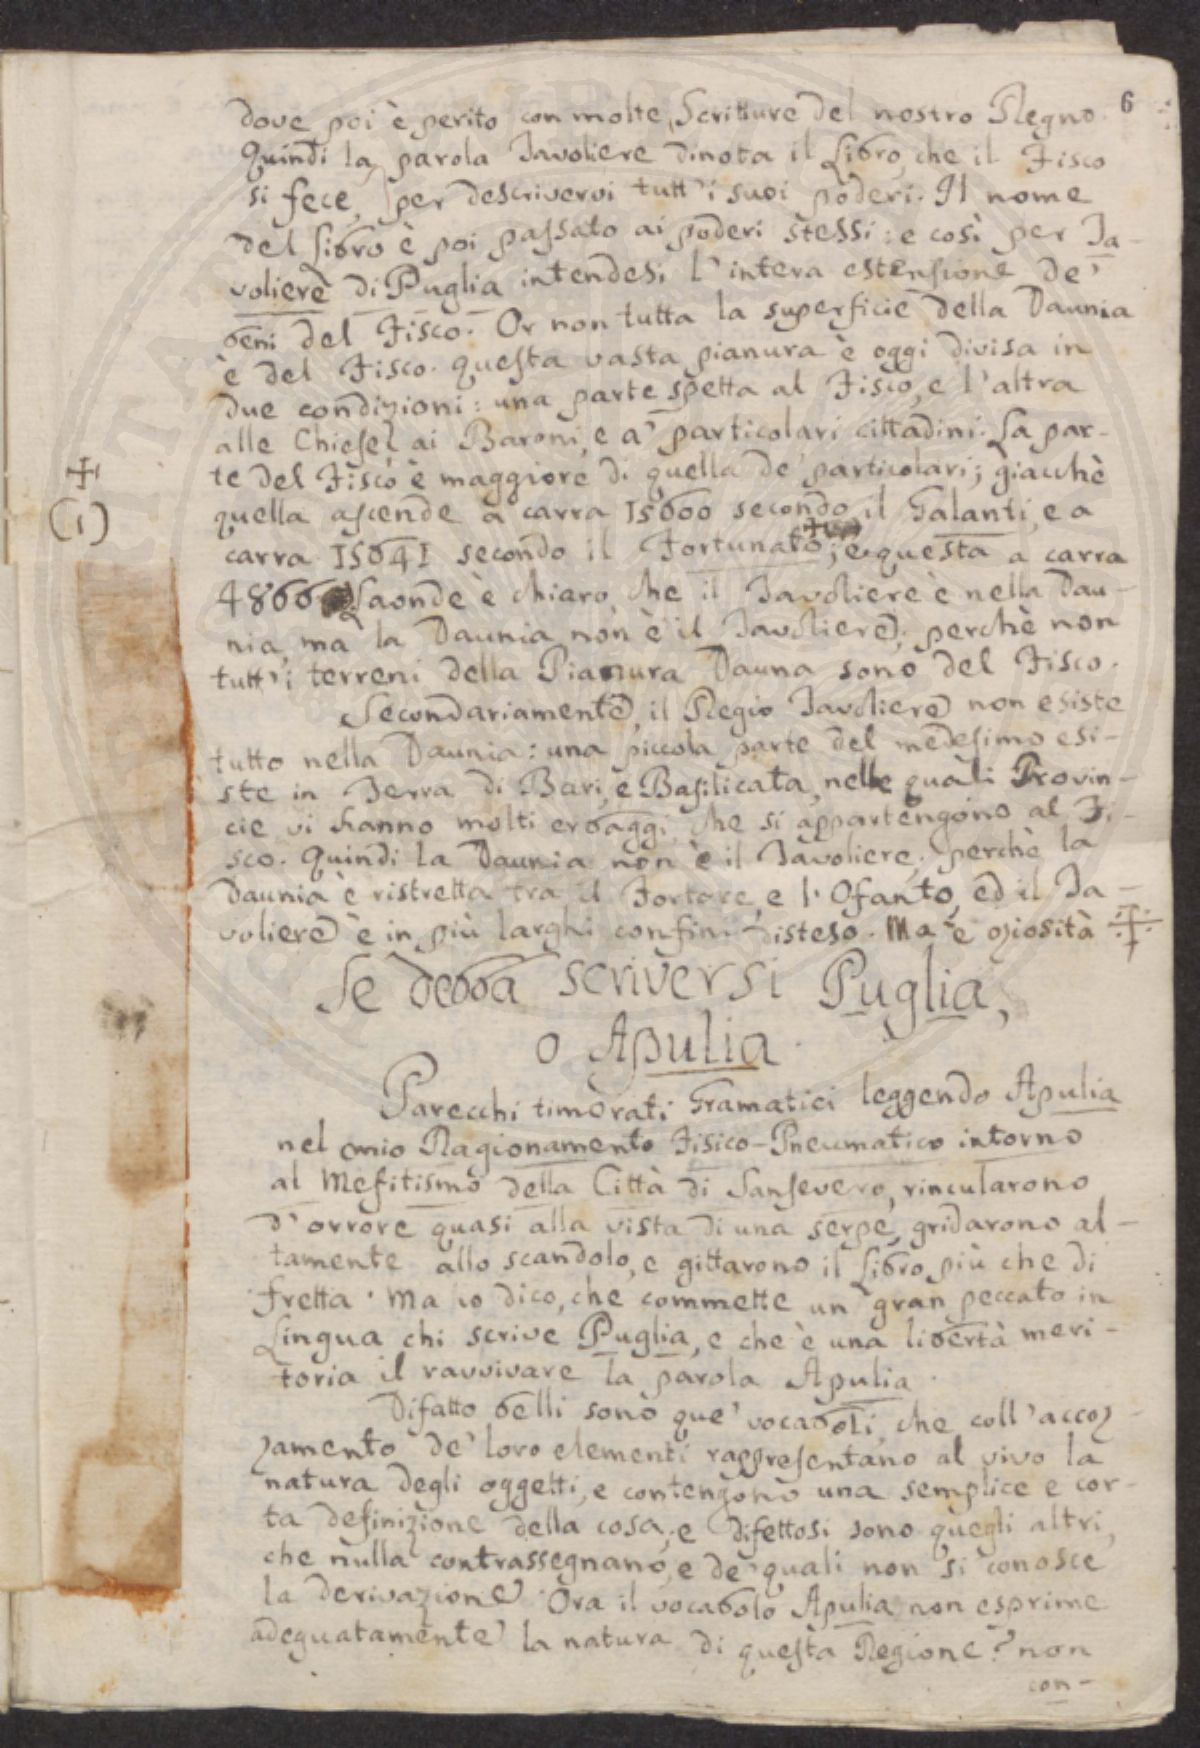 6
dove poi è perito con molte Scritture del nostro Regno.
Quindi la parola Tavoliere dinota il Libro, che il Fisco
si fece, per descrivervi tutt'i suoi poderi. Il nome
del Libro è poi passato ai poderi stessi: e così per Ta-
voliere di Puglia intendesi l'intera estensione de'
beni del Fisco. Or non tutta la superficie della Daunia
è del Fisco. Questa vasta pianura è oggi divisa in
due condizioni: una parte spetta al Fisco, e l'altra
alle Chiese, ai Baroni, e a' particolari cittadini. La par-
te del Fisco è maggiore di quella de' particolari; giacchè
quella ascende a carra 15600 secondo il Galanti, e a
carra 15641 secondo il Fortunato; e questa a carra
4866. Laonde è chiaro, che il Tavoliere è nella Dau-
nia, ma la Daunia non è il Tavoliere; perchè non
tutt'i terreni della Pianura Dauna sono del Fisco.
Secondariamente, il Regio Tavoliere non esiste
tutto nella Daunia: una piccola parte del medesimo esi-
ste in Terra di Bari, e Basilicata, nelle quali Provin-
cie vi hanno molti erbaggi, che si appartengono al Fi-
sco. Quindi la Daunia non è il Tavoliere; perchè la
Daunia è ristretta tra il Fortore, e l'Ofanto, ed il Ta-
voliere è in più larghi confini disteso. Ma è oziosità
(1)
Se debba scriversi Puglia,
o Apulia.
Parecchi timorati Gramatici leggendo Apulia
nel mio Ragionamento Fisico-Pneumatico intorno
al Mefitismo della Città di Sansevero, rincularono
d'orrore quasi alla vista di una serpe, gridarono al-
tamente allo scandolo, e gittarono il Libro più che di
fretta. Ma io dico, che commette un gran peccato in
Lingua chi scrive Puglia, e che è una libertà meri-
toria il ravvivare la parola Apulia.
Difatto belli sono que' vocaboli, che coll'accoz-
zamento de' loro elementi rappresentano al vivo la
natura degli oggetti, e contengono una semplice e cor-
ta definizione della cosa; e difettosi sono quegli altri,
che nulla contrassegnano, e de' quali non si conosce
la derivazione. Ora il vocabolo Apulia non esprime
adequatamente la natura di questa Regione? non
con-